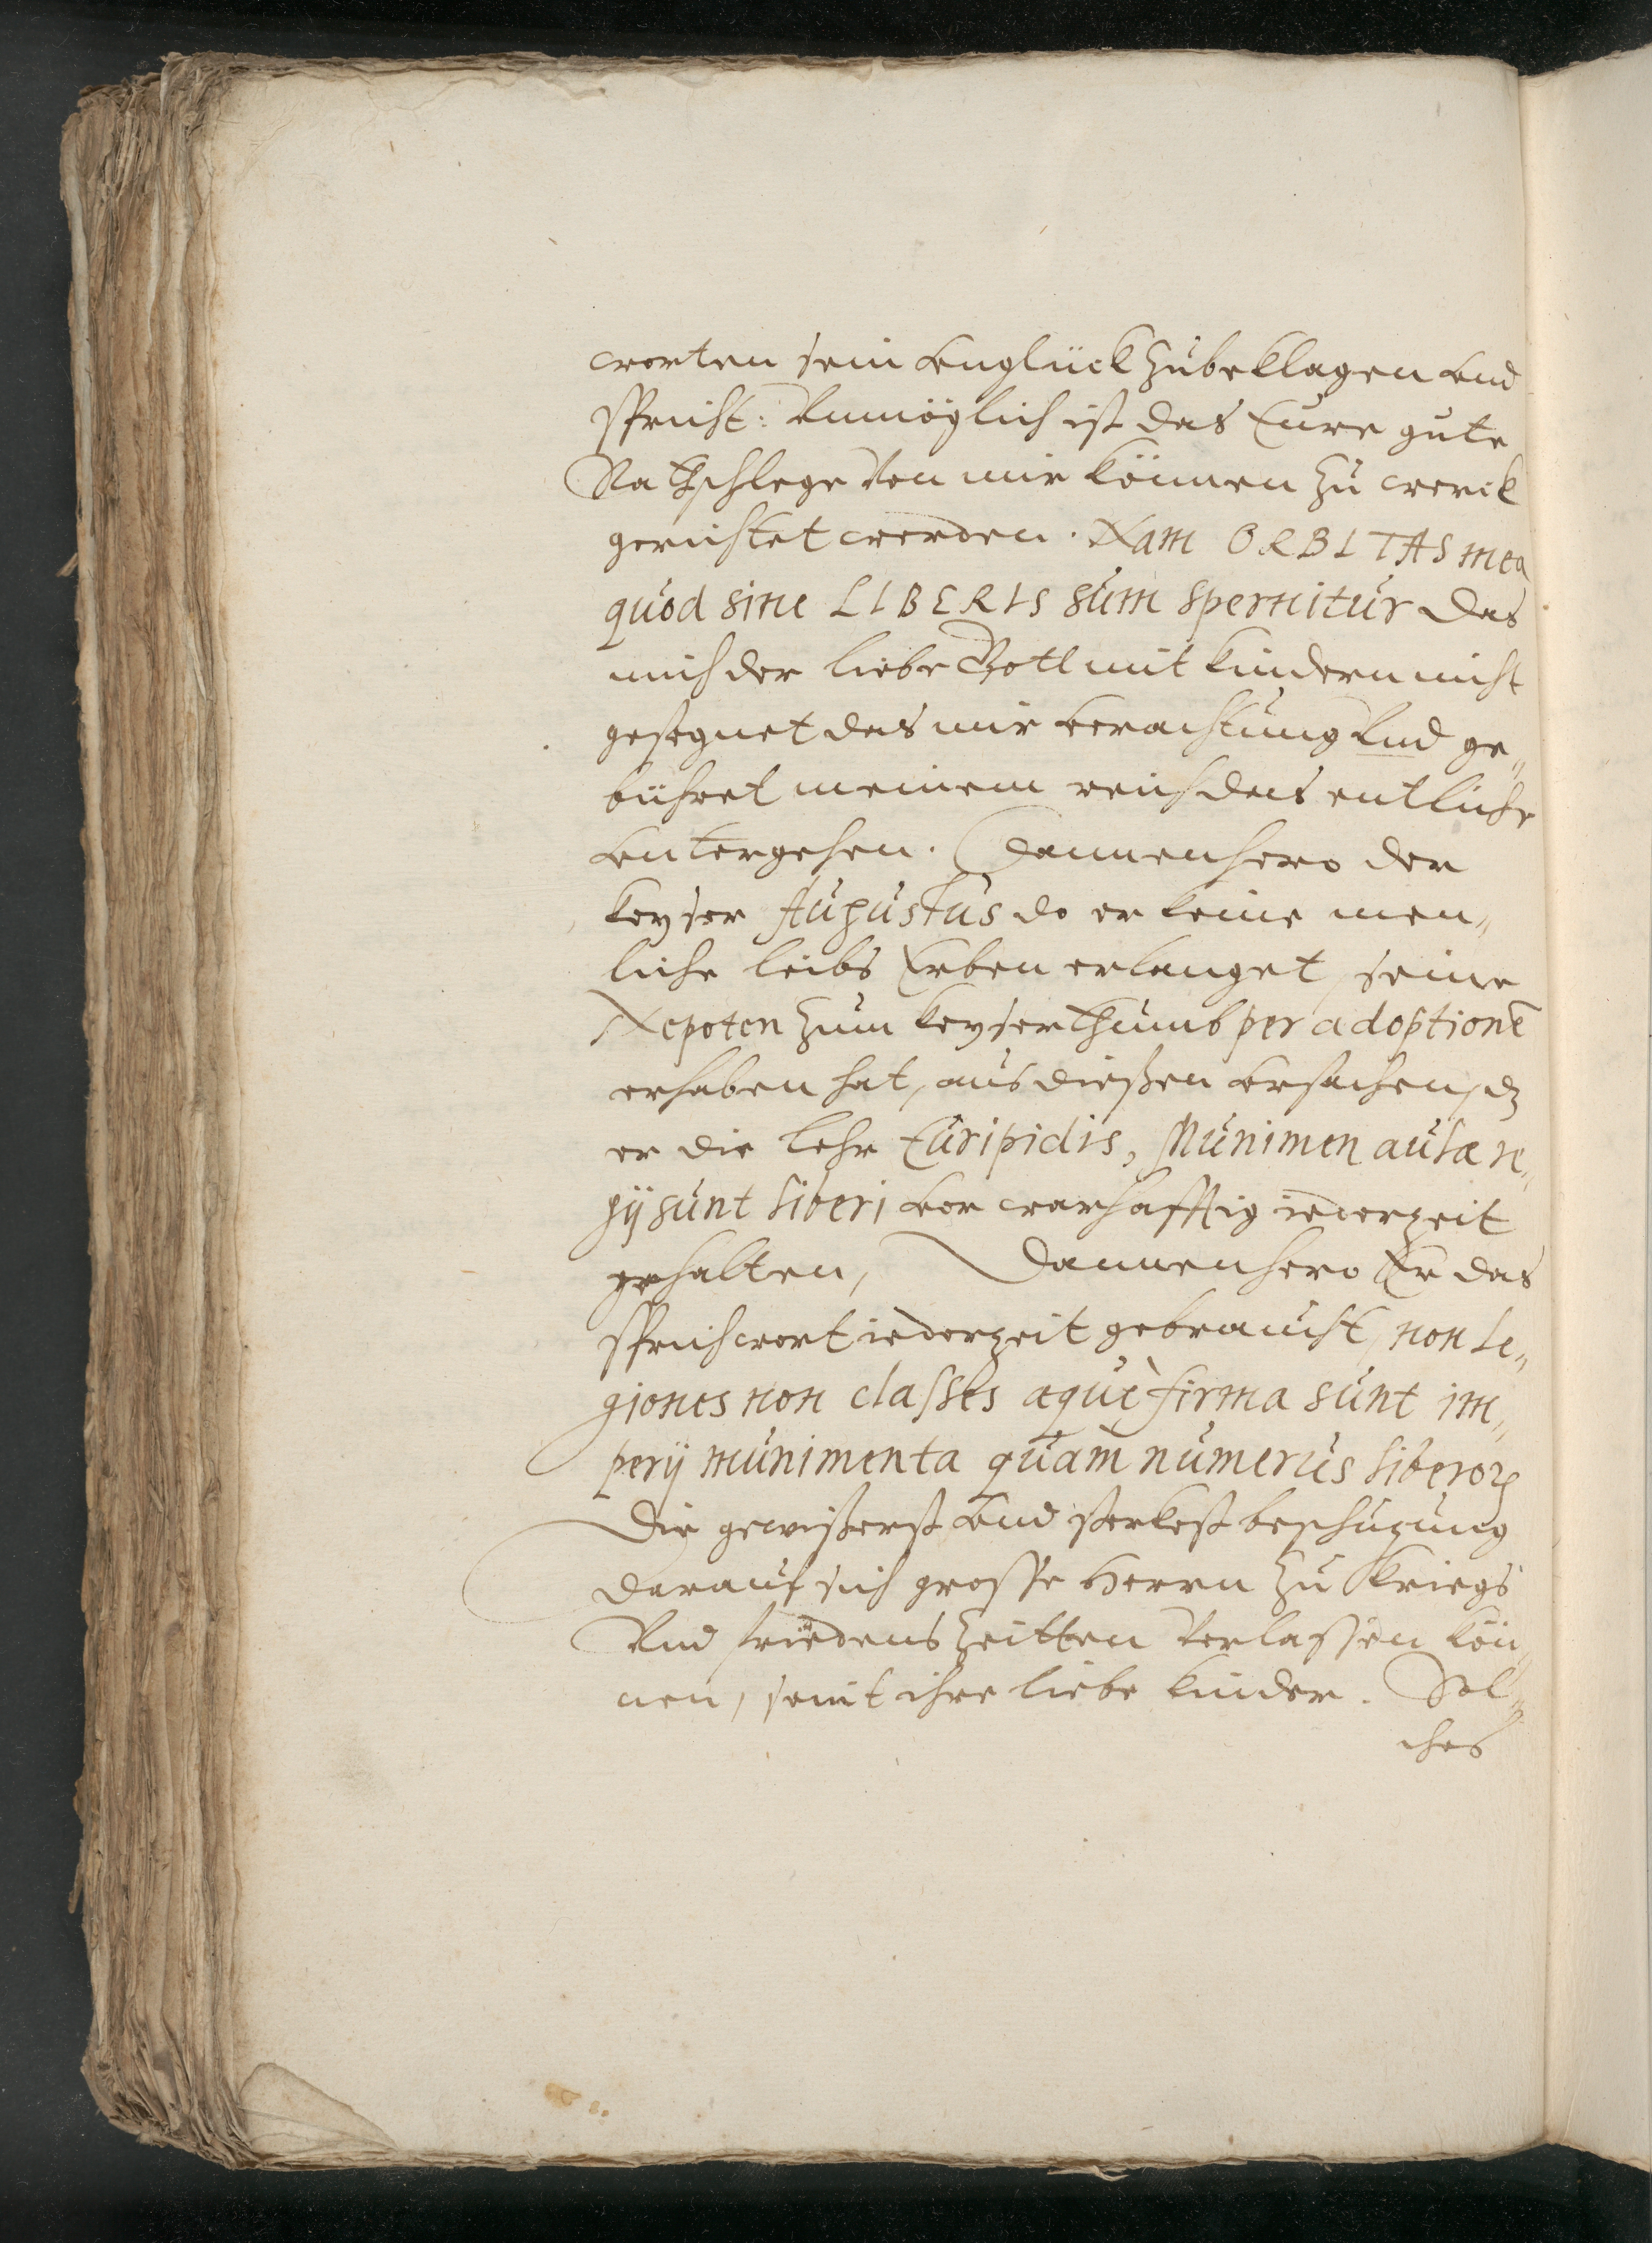 worten sein vnglück Zubeklagen vnd
spricht: Vnmöglich ist das Eure gute
Rathschlege Von mir können Zu werck
gerichtet werden. Nam ORBITAS mea
quod sine LIBERIS sum spernitur das
mich der liebe Gott mit kindern nicht
gesegnet das mir verachtung Vnd ge„
bühret meinem reich das entliche
vntergehen. Dannenhero der
keyser Augustus do er keine men„
liche leibs Erben erlanget, seine
Nepoten Zum keyserthumb per adoptionē
erhaben hat, aus dießen vrsachen, dz
er die lehr Euripidis, Munimen aulæ re„
gij sunt liberi vor warhafftig iederzeit
gehalten, Dannenhero Er das
sprichwort iederzeit gebraucht, non le„
giones non classes æquè firma sunt im„
perij munimenta quàm numerus liberoꝝ
Die gewißerst vnd sterkest beschüzung
darauf sich grosse Herrn Zu Kriegs
Vnd friedens Zeitten Verlassen kön„
nen, seint ihre liebe kinder. Sol„
ches